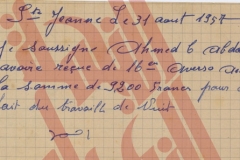 Ste Jeanne Le 31 aout 1957
Je soussigné Ahmed b Abda
avoire reçue de Mr
la somme de 9200 Francs pour
fait du travaille de Nuit